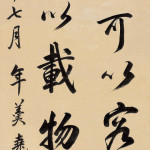 可以容
以載物
七月年羹堯